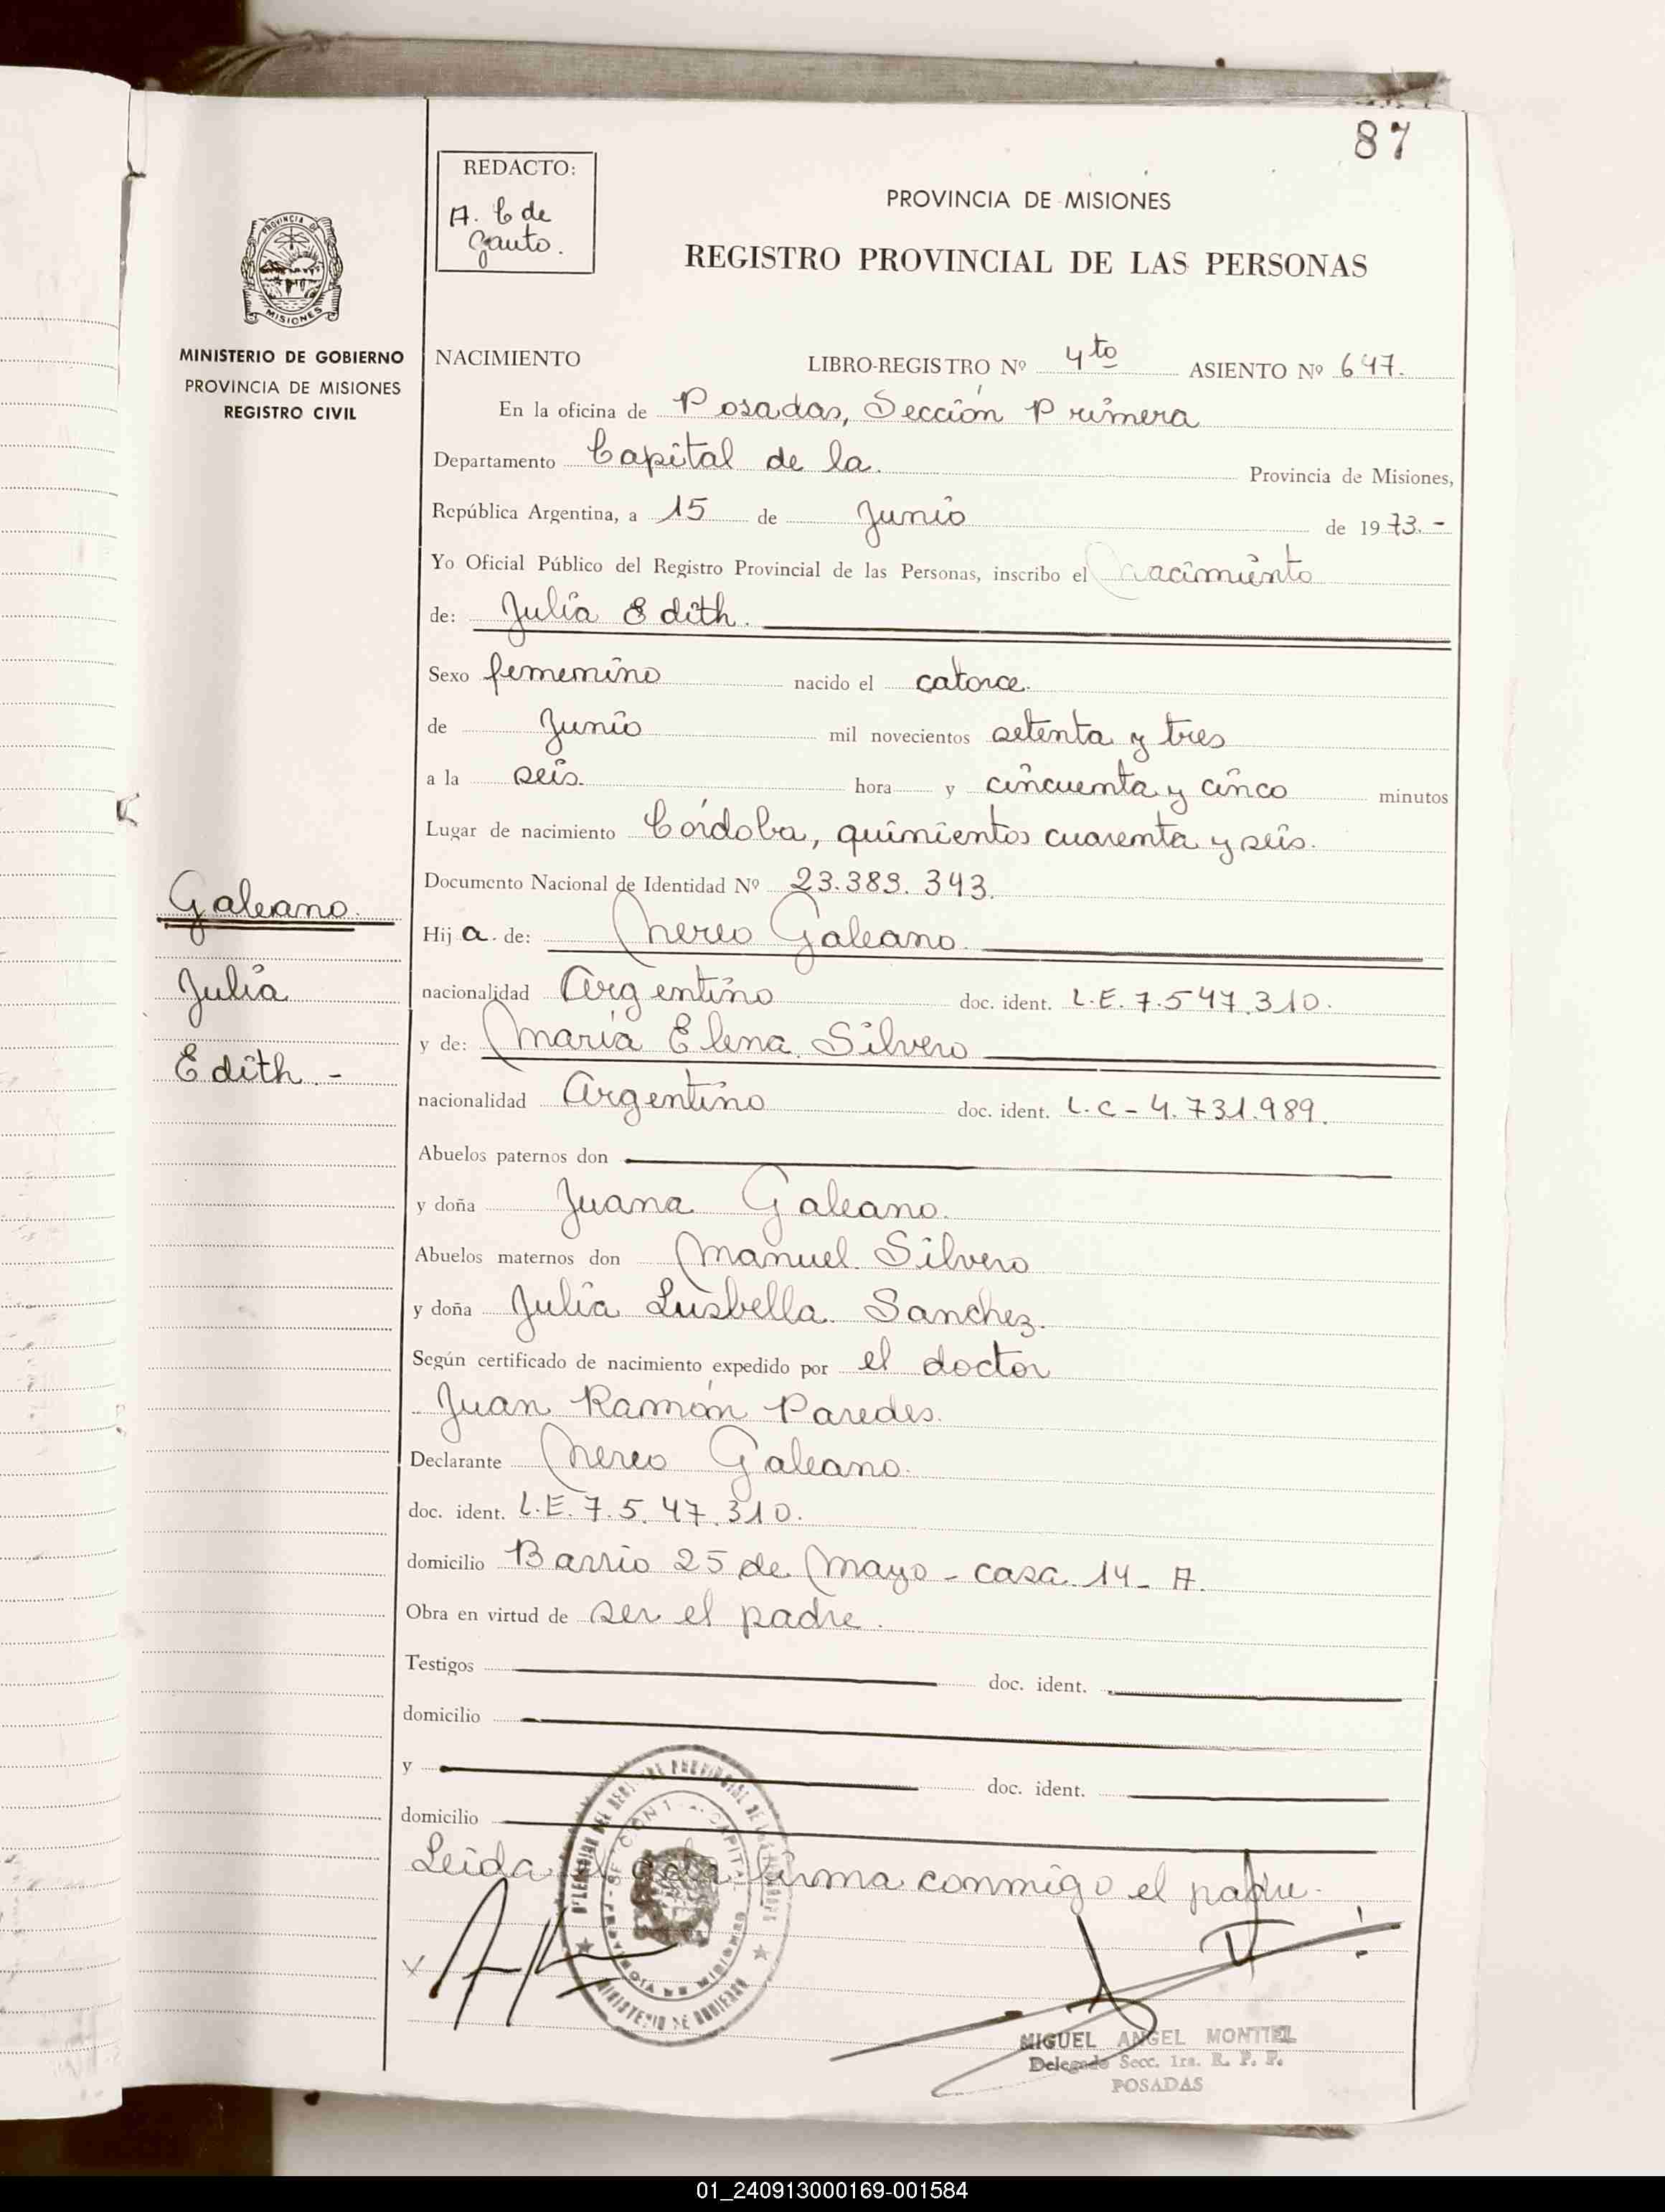 87
REDACTO:
A. C de
Gauto.
PROVINCIA DE MISIONES
REGISTRO PROVINCIAL DE LAS PERSONAS
MISIONES
MINISTERIO DE GOBIERNO
PROVINCIA DE MISIONES
REGISTRO CIVIL
NACIMIENTO LIBRO-REGISTRO Nº 4to ASIENTO Nº 647.
En la oficina de Posadas, Sección Primera
Departamento Capital de la. Provincia de Misiones,
República Argentina, a 15 de Junio de 1973.-
Yo Oficial Público del Registro Provincial de las Personas, inscribo el Nacimiento
de: Julia Edith.
Sexo femenino nacido el catorce.
de Junio mil novecientos setenta y tres
a la seis. hora y cincuenta y cinco minutos
Lugar de nacimiento Córdoba, quinientos cuarenta y seis.
Documento Nacional de Identidad Nº 23.383.343.
Galeano.
Julia
Edith.-
Hij a. de: Nereo Galeano.
nacionalidad Argentino doc. ident. L.E. 7.547.310.
y de: María Elena Silvero
nacionalidad Argentino doc. ident. L.C-4.731.989.
Abuelos paternos don
y doña Juana Galeano.
Abuelos maternos don Manuel Silvero
y doña Julia Lusbella Sanchez.
Según certificado de nacimiento expedido por el doctor
Juan Ramón Paredes.
Declarante Nereo Galeano.
doc. ident. L.E. 7.547.310.
domicilio Barrio 25 de Mayo - casa 14- A.
Obra en virtud de ser el padre.
Testigos doc. ident.
domicilio
y doc. ident.
domicilio
Leida el acta firma conmigo el padre.
MINISTERIO DE GOBIERNO
MIGUEL ANGEL MONTIEL
Delegado Secc. 1ra. R. P. P.
POSADAS
01_240913000169-001584